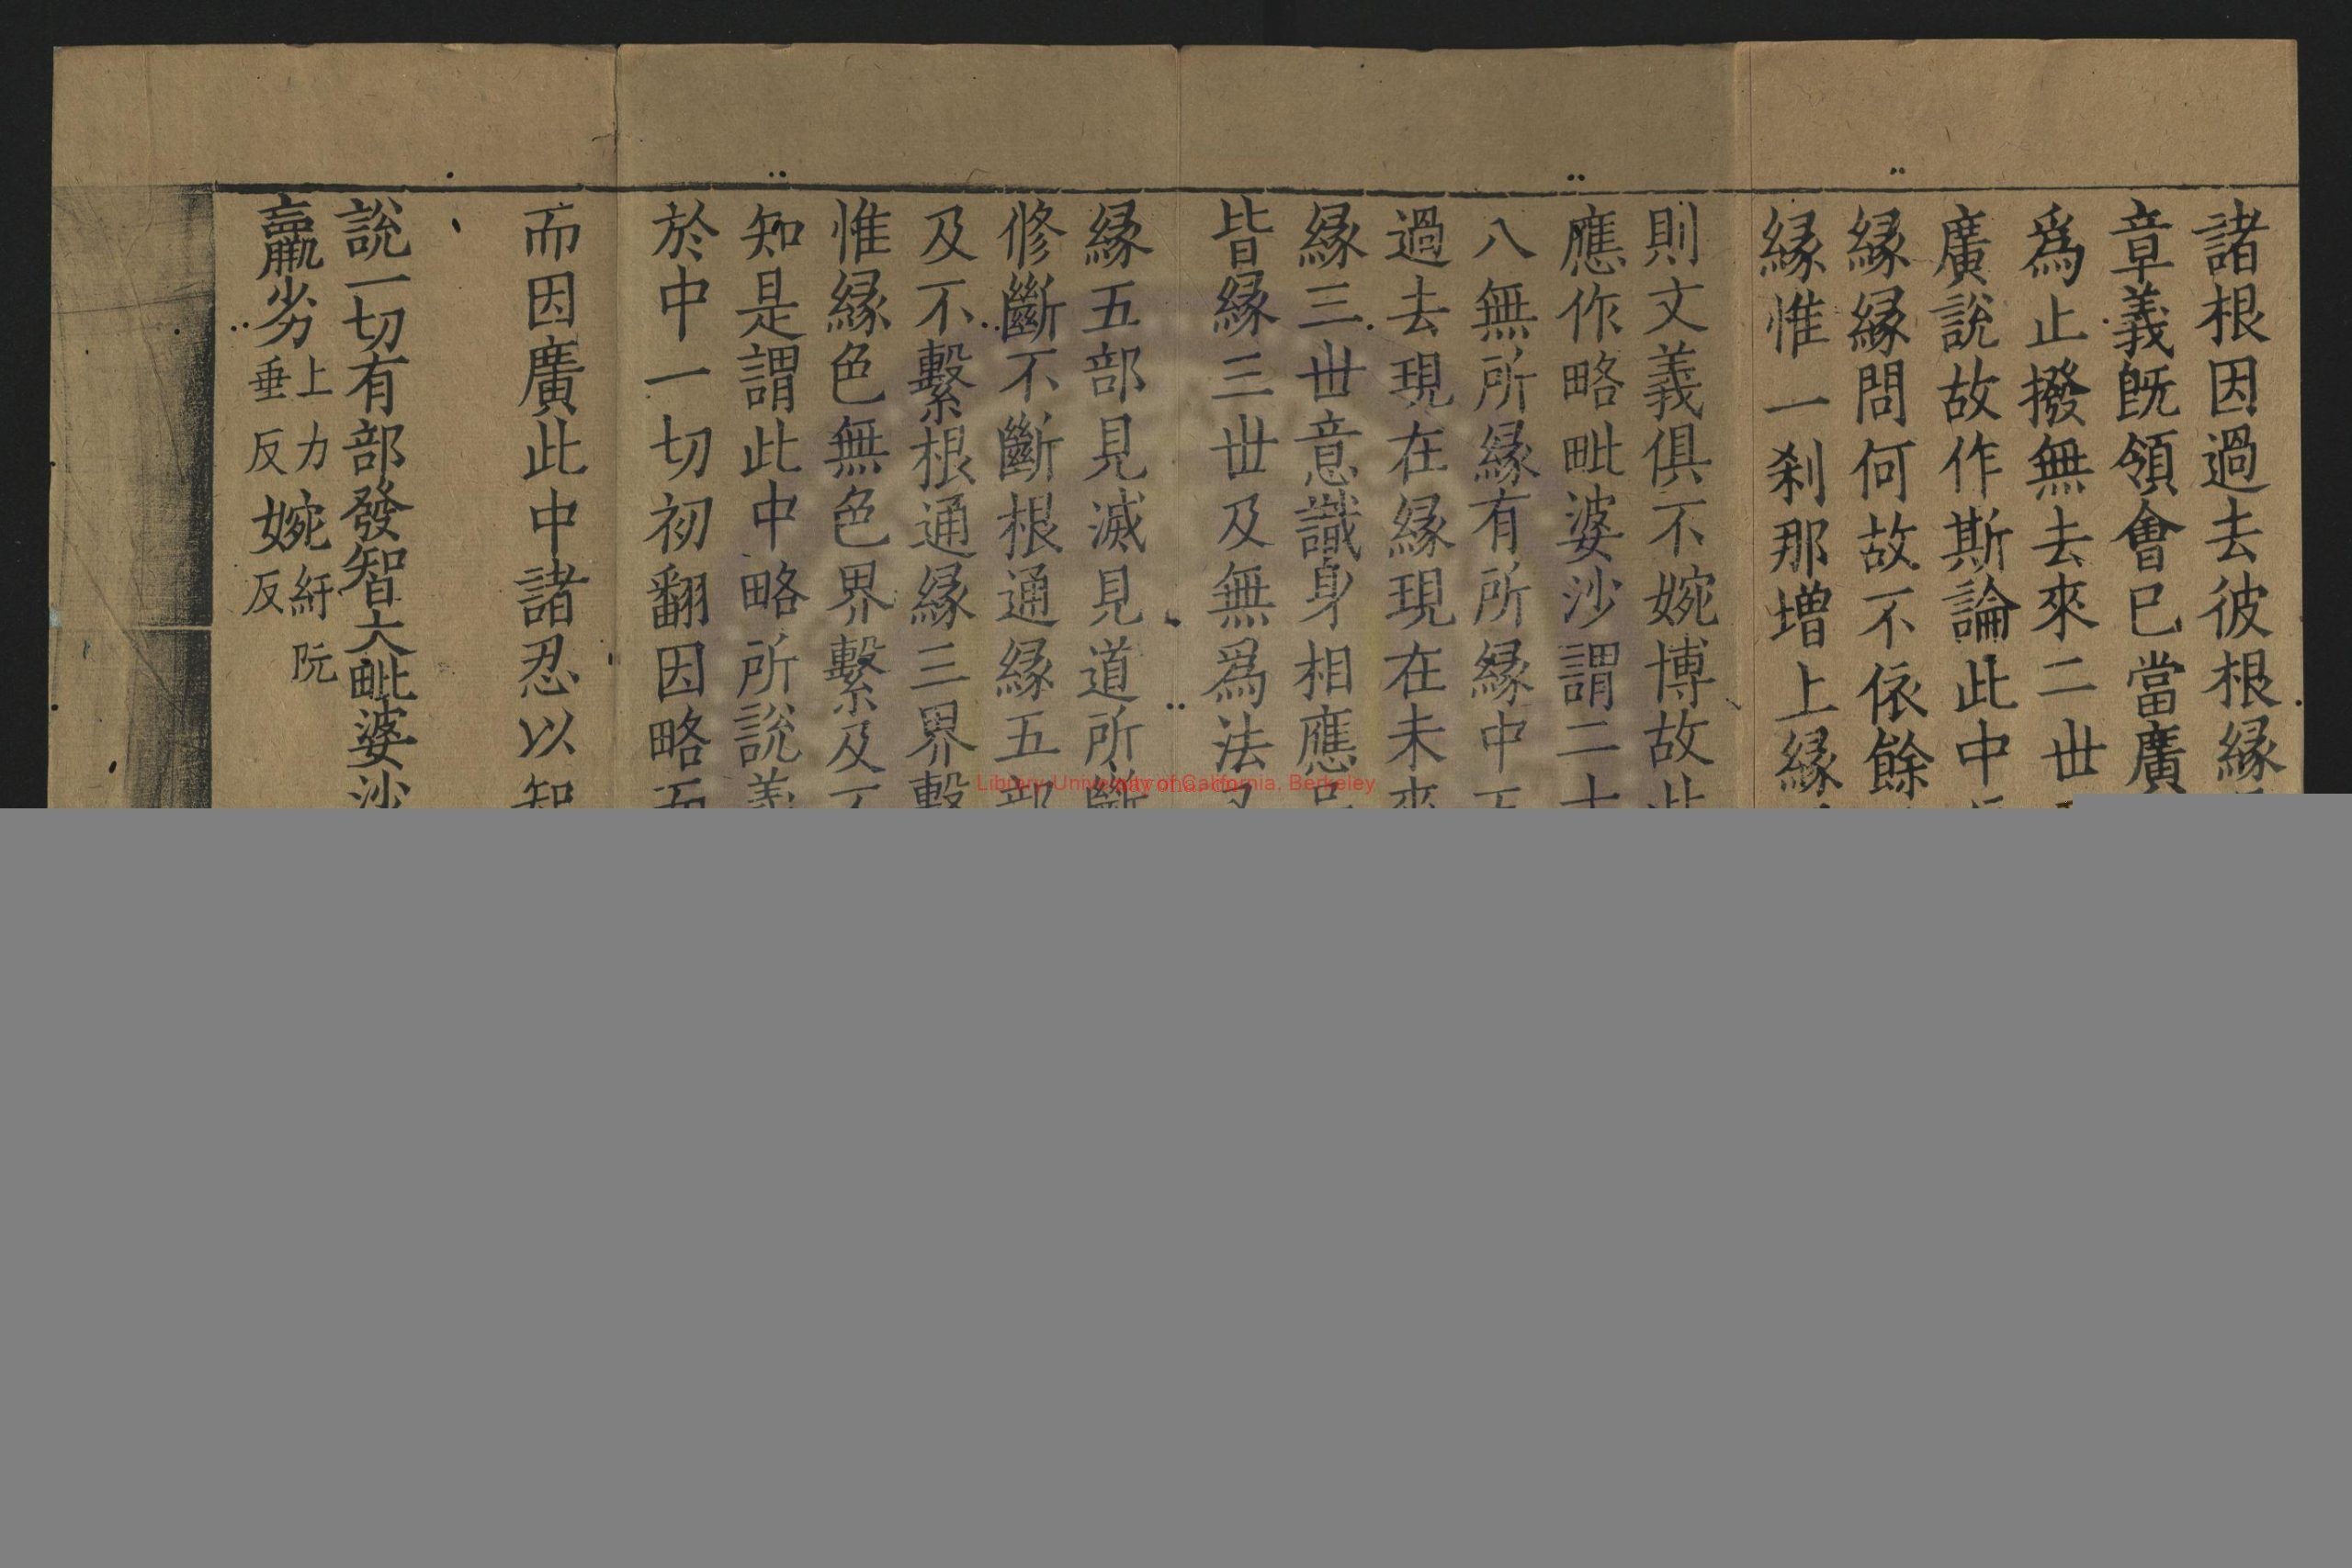 諸根因過去彼根緣
章義既領會已當廣
爲止撥無去來二世
廣說故作斯論此中
緣緣問何故不依餘
緣惟一刹那增上緣
則文義俱不婉博故此
應作略毗婆沙謂二十
八無所緣有所緣中
過去現在緣現在未來
緣三世意識身相應
皆緣三世及無爲法
緣五部見滅見道所斷
修斷不斷根通緣五部
及不繫根通緣三界繫
惟緣色無色界繫及不
知是謂此中略所說義
於中一切初翻因略而
而因廣此中諸忍以智
說一切有部發智大毗婆沙
羸劣上力垂反婉紆阮反
Library University of California, Berkeley